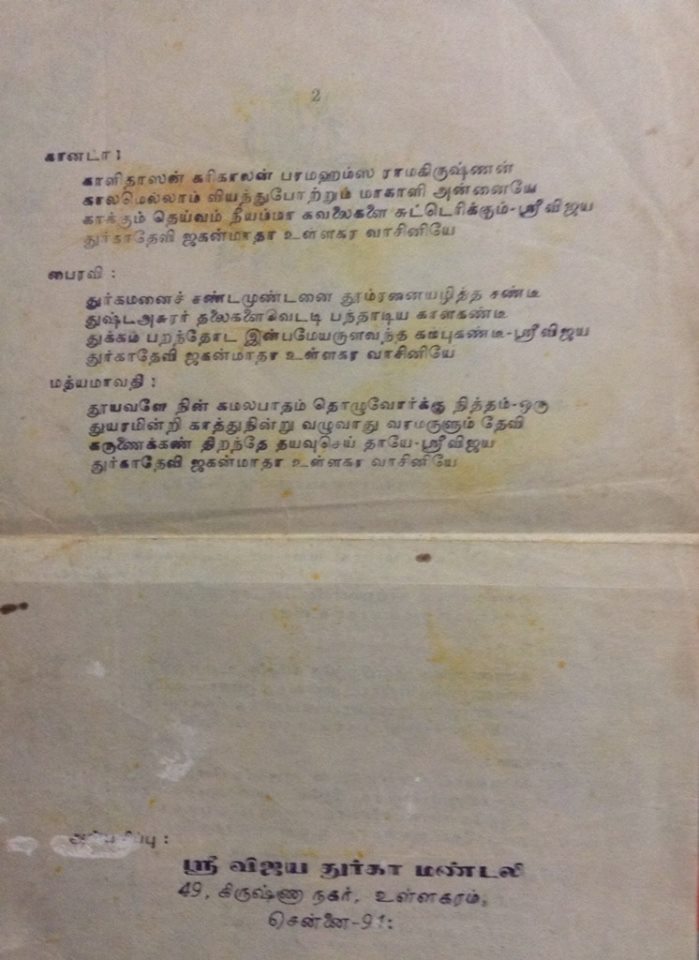 2
கானடா :
காளிதாஸன் கரிகாலன் பரமஹம்ஸ ராமகிருஷ்ணன்
காலமெல்லாம் வியந்துபோற்றும் மாகாளி அன்னையே
காக்கும் தெய்வம் நீயம்மா கவலைகளை சுட்டெரிக்கும்-ஸ்ரீ விஜய
துர்காதேவி ஜகன்மாதா உள்ளகர வாசினியே
பைரவி :
துர்கமனைச் சண்டமுண்டனை தூம்ரனையழித்த சண்டீ
துஷ்டஅசுரர் தலைகளைவெட்டி பந்தாடிய காளகண்டீ
துக்கம் பறந்தோட இன்பமேயருளவந்த கம்புகண்டீ-ஸ்ரீவிஜய
துர்காதேவி ஜகன்மாதா உள்ளகர வாசினியே
மத்யமாவதி :
தூயவளே நின் கமலபாதம் தொழுவோர்க்கு நித்தம்-ஒரு
துயரமின்றி காத்துநின்று வழுவாது வரமருளும் தேவி
கருணைக்கண் திறந்தே தயவுசெய் தாயே-ஸ்ரீவிஜய
துர்காதேவி ஜகன்மாதா உள்ளகர வாசினியே
ஸ்ரீ விஜய துர்கா மண்டலி
49, கிருஷ்ணா நகர், உள்ளகரம்,
சென்னை-91: